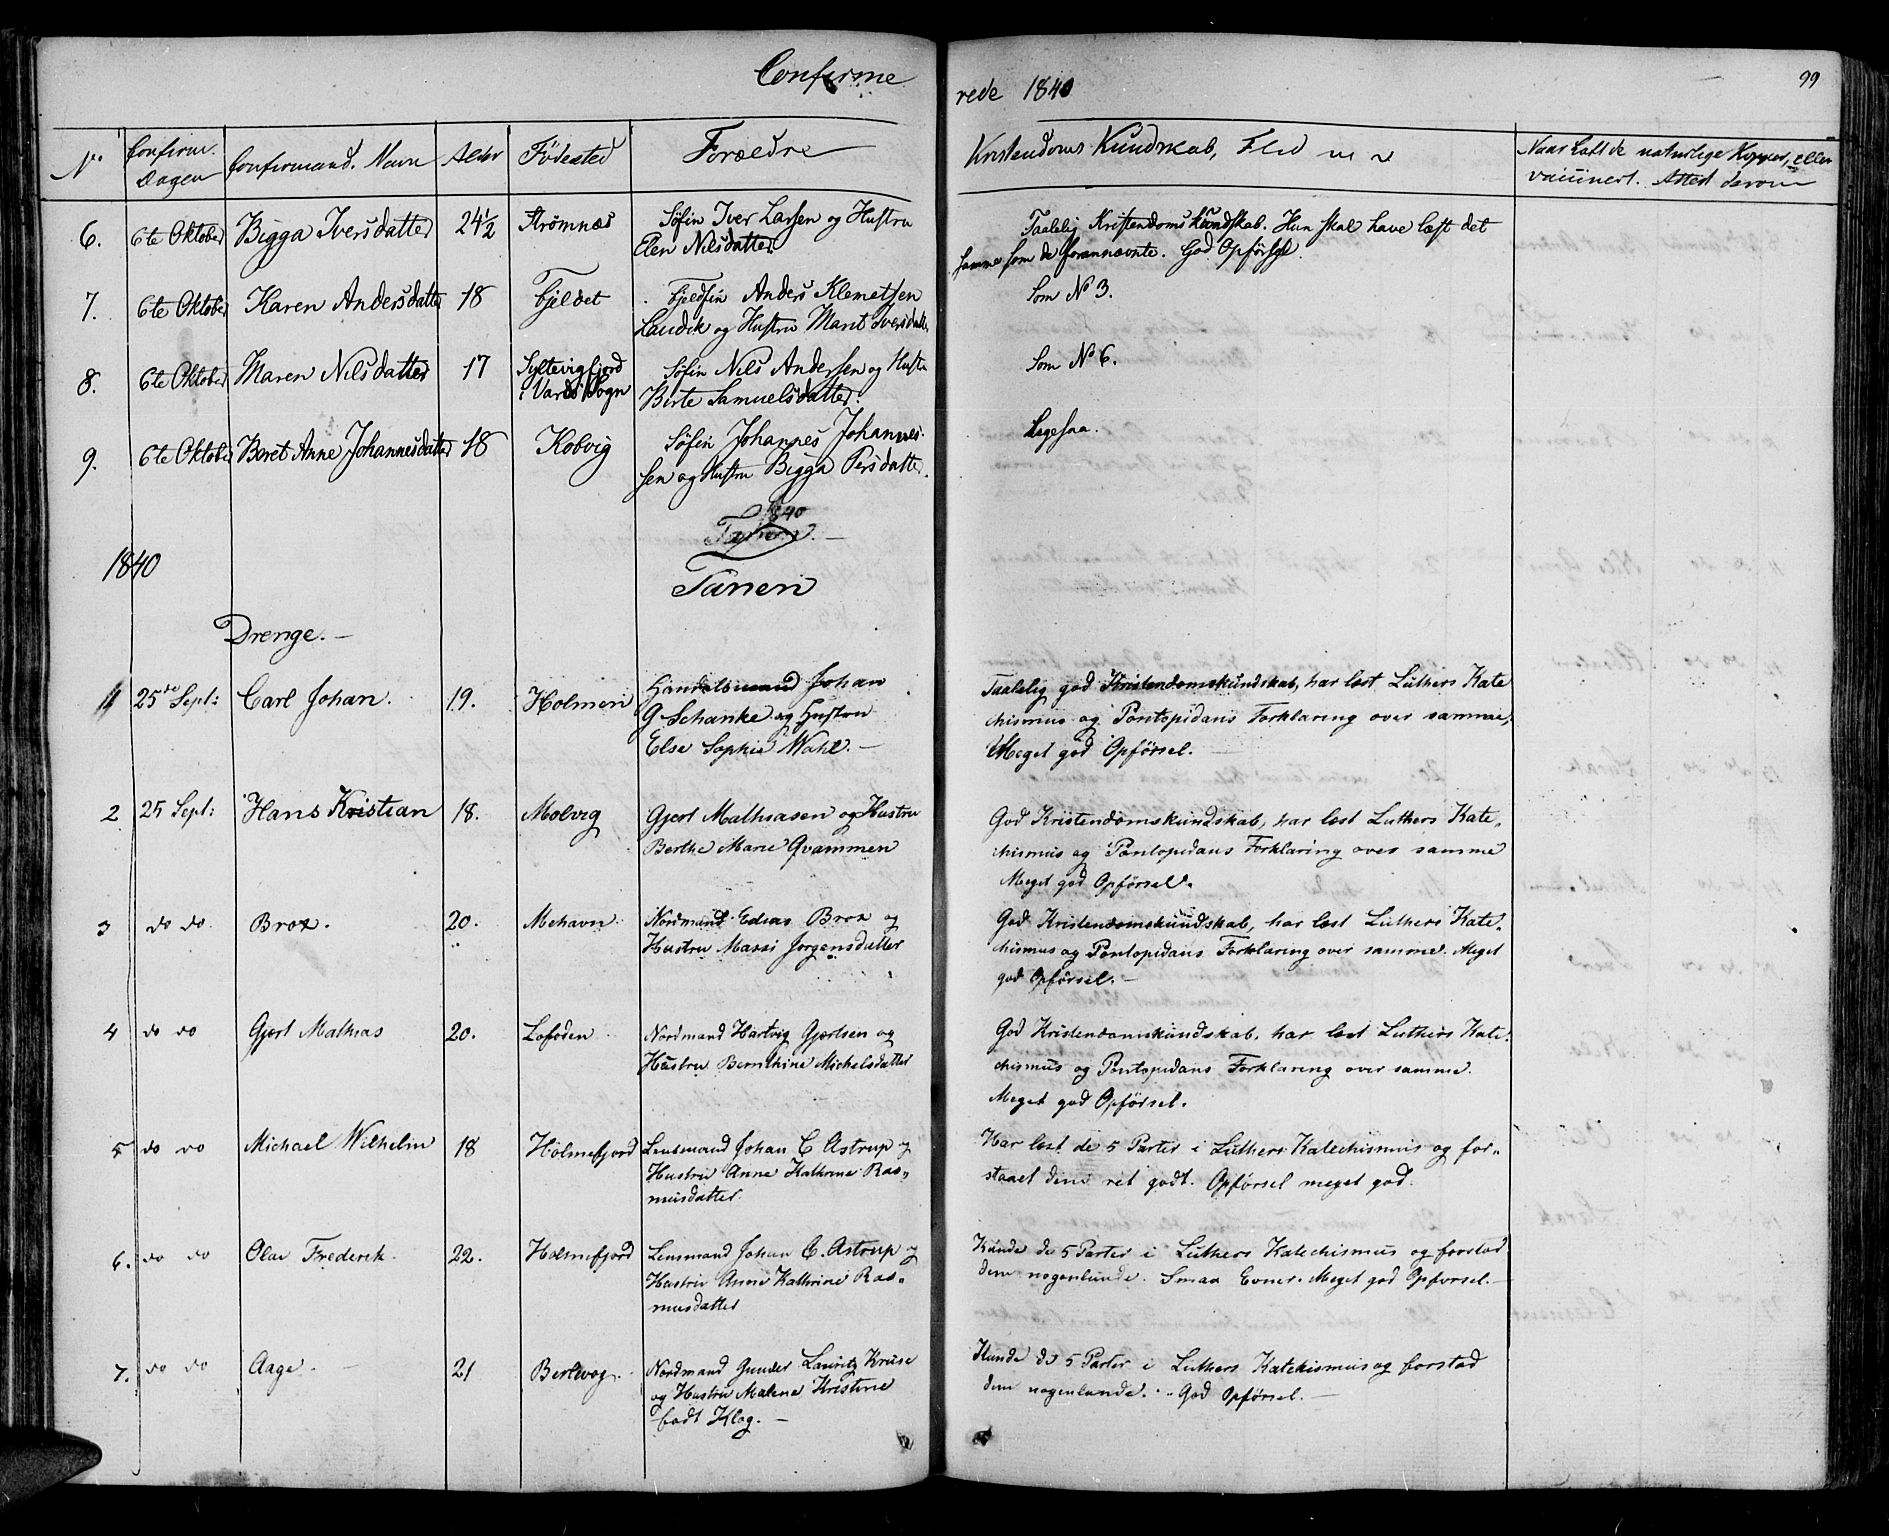 Confirme
rede 1840
99
No
Confirm. Dagen
Confirmand. Navn
Alder
Födested
Forældre
Kristendoms Kundskab, Flid
Naar haft de naturlige Kopper, eller
vaccinert. Attest derom
6. 6te Oktober Bigga Iversdatter 24½ Strömnæs Söfin Iver Larsen og Hustru
Elen Nilsdatter
Taalelig Kristendomskundskab. Hun skal have læst det
samme som de forannævnte. God Opförsel.
7. 6te Oktober Karen Andersdatter 18 Fjeldet Fjeldfin Anders Klemetsen
og Hustru Marit Iversdatter
Som No 3.
8. 6te Oktober Maren Nilsdatter 17 Syltevigfjord
Vardö Sogn
Söfin Nils Andersen og Hustru
Birte Samuelsdatter.
Som No 6.
9. 6te Oktober Beret Anne Johannesdatter 18 Kobvig Söfin Johannes Johannes-
sen og Hustru Bigga Persdatter.
Ligesaa.
1840
1840
Tanen
Drenge. –
1 25de Sept: Carl Johan. 19. Holmen Handelsmand Johan
G Schanke og Hustru
Else Sophie Wahl. –
Taalelig god Kristendomskundskab, har læst Luthers Kate
chismus og Pontopidans Forklaring over samme,
Meget god Opförsel.
2 25 Sept: Hans Kristian 18. Molvig Gjert Mathiasen og Hustru
Berthe Marie Qvammen
God Kristendomskundskab, har læst Luthers Kate-
chismus og Pontopidans Forklaring over samme
Meget god Opförsel.
3 do do. Brox. 20. Mehavn Nordmand Edias Brox og
Hustru Massi Jorgensdatter
God Kristendomskundskab, har læst Luthers Kate-
chismus og Pontopidans Forklaring over samme. Meget
god Opförsel. –
4 do do Gjert Mathias 20. Lofoden Nordmand Hartvig Gjertsen og
Hustru Bernthine Michelsdatter
God Kristendomskundskab, har læst Luthers Kate-
chismus og Pontopidans Forklaring over samme.
Meget god Opförsel.
5 do do Michael Wilhelm 18 Holmefjord Lensmand Johan C Astrup og
Hustru Anne Kathrine Ras-
musdatter
Har læst de 5 Parter i Luthers Katechismus og for-
staaet dem ret godt. Opförsel meget god.
6. do do Olae Frederik 22. Holmefjord Lensmand Johan C. Astrup og
Hustru Anne Kathrine Ras-
musdatter
Kunde de 5 Parter i Luthers Katechismus og forstod
dem nogenlunde. Smaa Evner. Meget god Opförsel. –
7. do do Aage. – 21 Berlevog Nordmand Gunder Lauritz Kruse
og Hustru Malene Kristine
födt Klog. –
Kunde de 5 Parter i Luthers Katekismus og forstod
dem nogenlunde. – God Opförsel. –